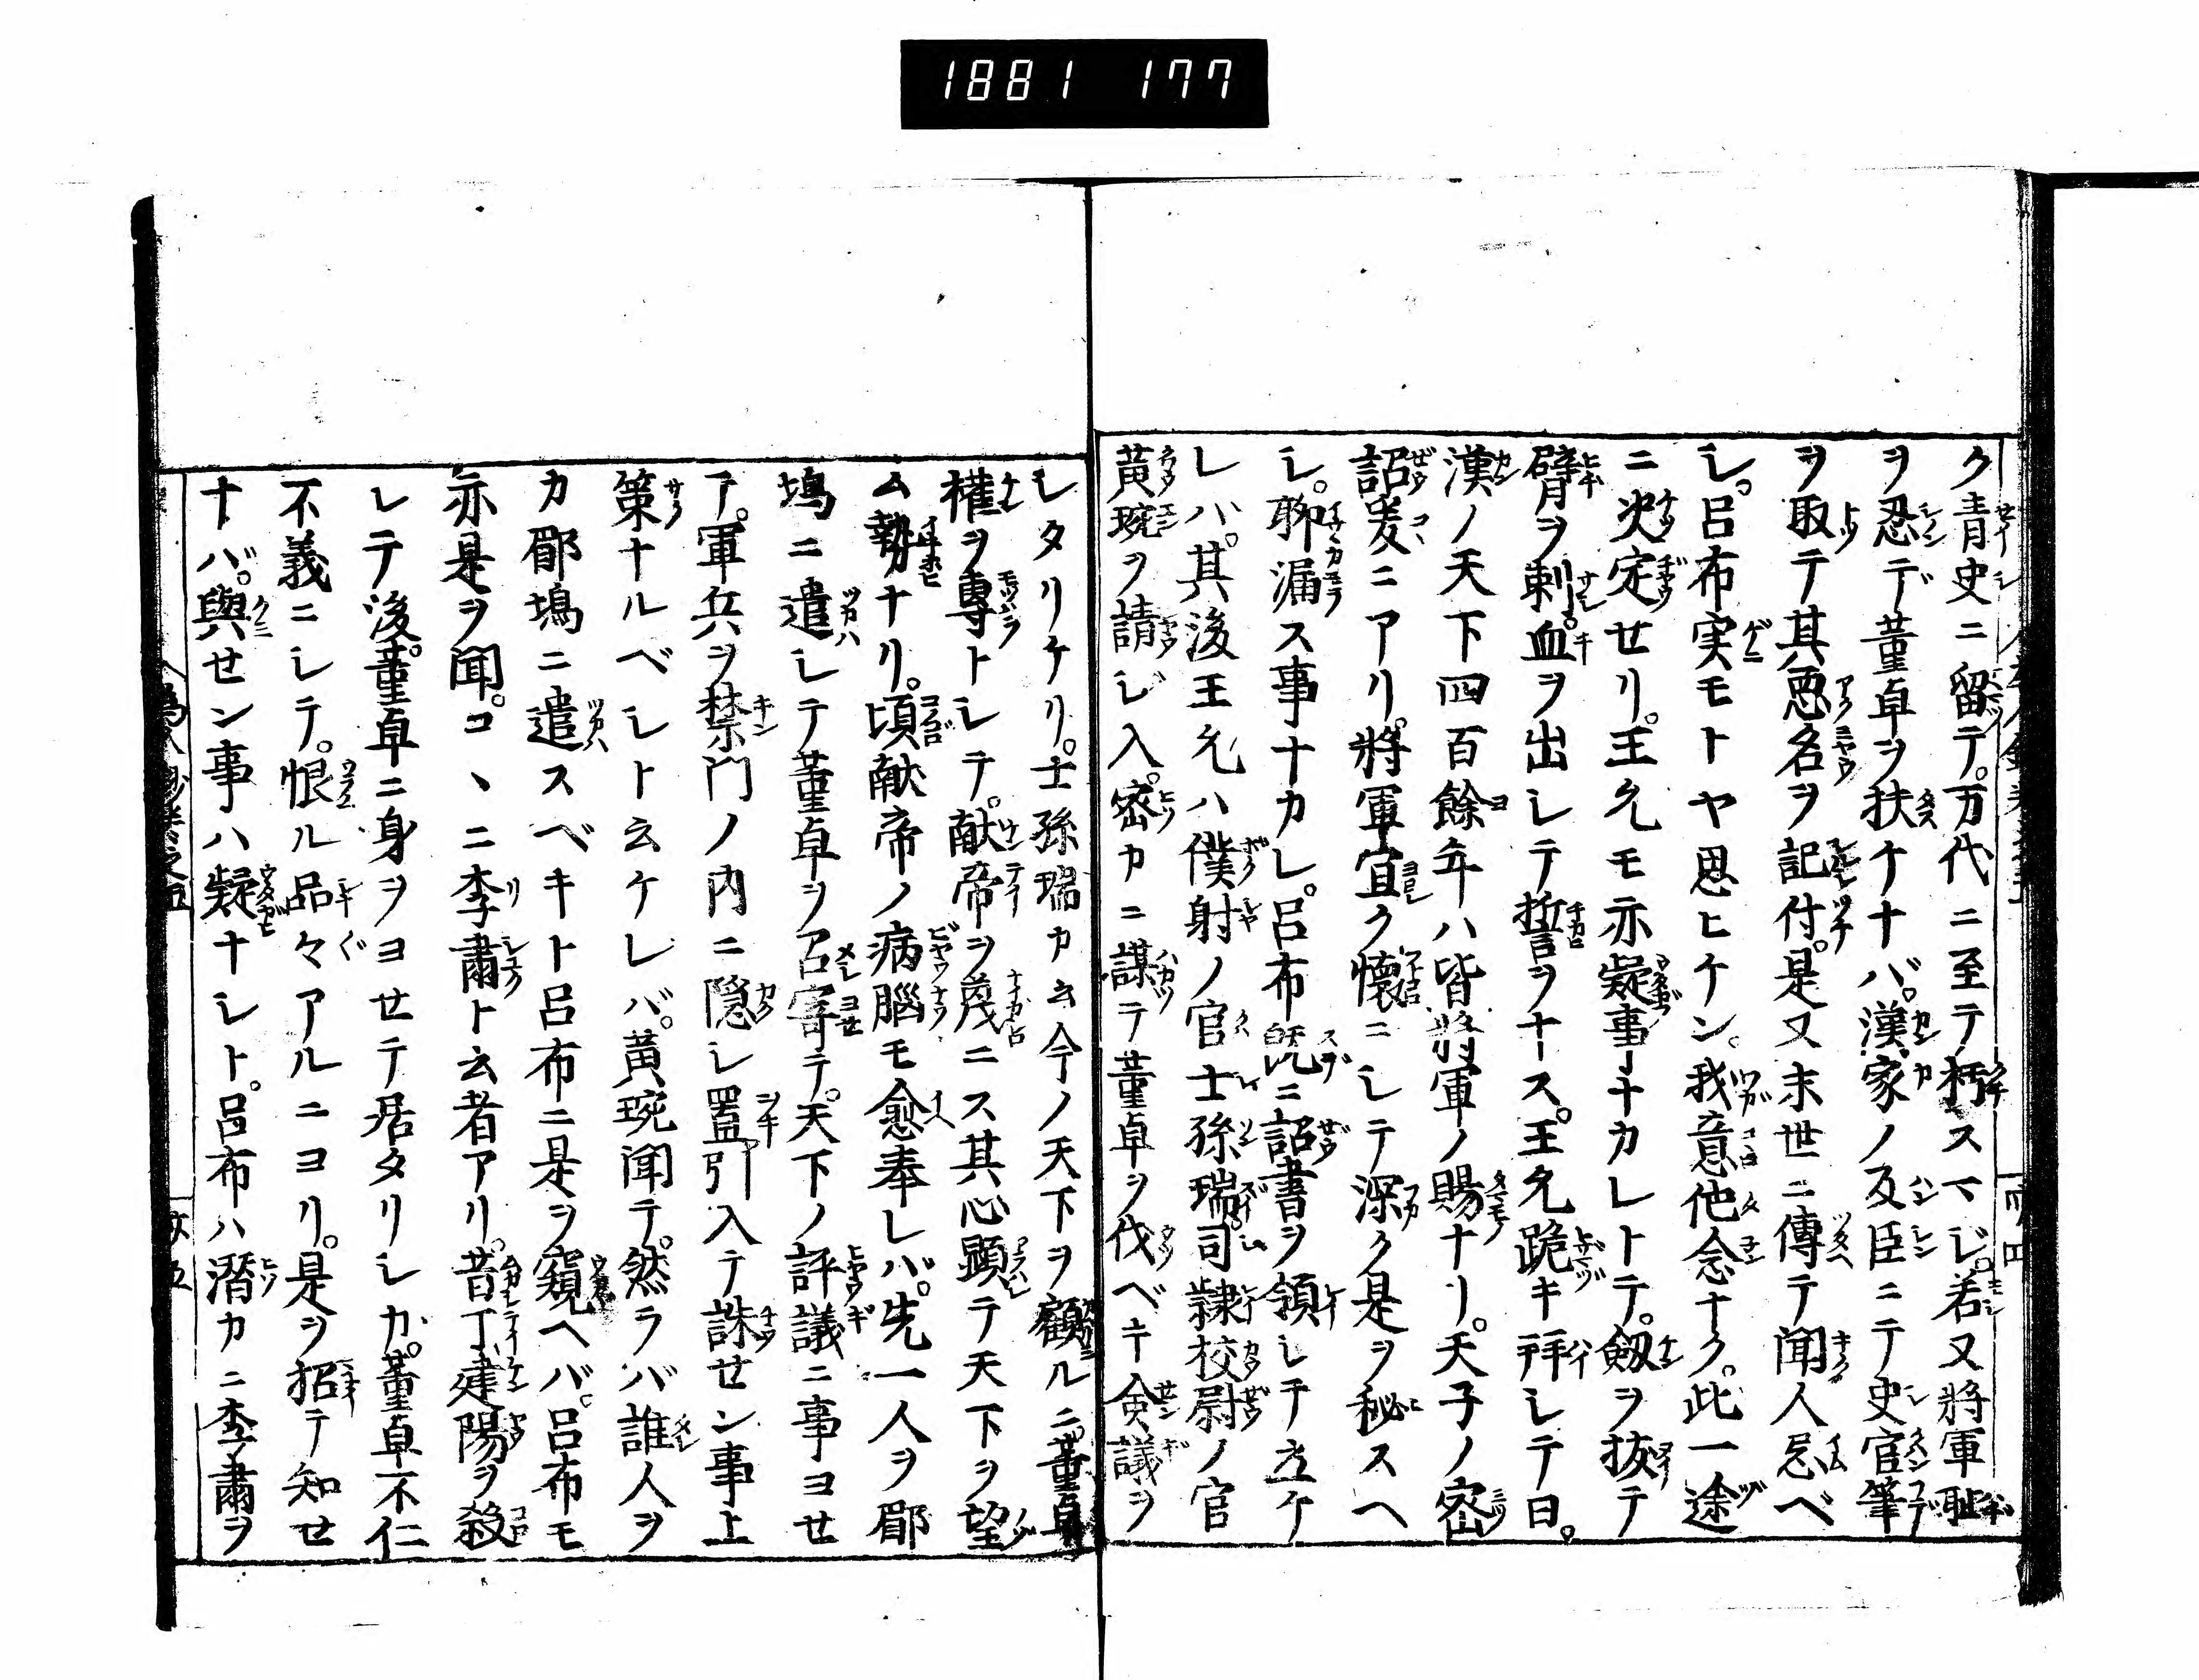 1881 177
ク青史ニ留テ。万代ニ至テ朽スマジ。若又將軍耻
ヲ忍デ董卓ヲ扶ケナバ。漢家ノ反臣ニテ史官筆
ヲ取テ其悪名ヲ記付。是又末世ニ傳テ聞人忌ベ
シ。呂布実モトヤ思ヒケン。我意他念ナク。此一途
ニ决定せリ。王允モ亦疑事ナカレトテ。劔ヲ抜テ
臂ヲ刺。血ヲ出シテ誓ヲナス。王允跪キ拜シテ曰。
漢ノ天下四百餘年ハ皆將軍ノ賜ナリ。天子ノ密
詔爰ニアリ。將軍宜ク懷ニシテ深ク是ヲ秘スヘ
シ。聊漏ス事ナカレ。呂布既ニ詔書ヲ領シテ立ケ
レハ。其後王允ハ僕射ノ官士孫瑞。司隷校尉ノ官
黄琬ヲ請ジ入。密カニ謀テ董卓ヲ伐ベキ僉議ヲ
シタリケリ。士孫瑞カ云今ノ天下ヲ顧ルニ。董卓
權ヲ專トシテ。献帝ヲ蔑ニス其心顕テ天下ヲ望
ム勢ナリ。頃献帝ノ病腦モ愈奉レバ。先一人ヲ郿
塢ニ遣シテ董卓ヲ召寄テ。天下ノ評議ニ事ヨせ
テ。軍兵ヲ禁門ノ内ニ隠シ置。引入テ誅せン事上
策ナルベシト云ケレバ。黄琬聞テ。然ラバ誰人ヲ
カ郿塢ニ遣スベキト呂布ニ是ヲ窺ヘバ。呂布モ
亦是ヲ聞。コヽニ李肅ト云者アリ。昔丁建陽ヲ殺
シテ後。董卓ニ身ヲヨせテ居タリシガ。董卓不仁
不義ニシテ。恨ル品々アルニヨリ。是ヲ招テ知せ
ナバ。與せン事ハ疑ナシト。呂布ハ潛カニ李肅ヲ